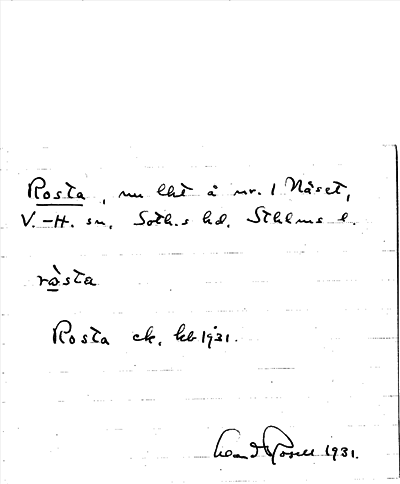 Rosta, nu lht å nr. 1 Näset,
V.-H. sn, Soth.s hd. Sthlms l.
ròsta
Rosta ck, kb 1931.
1931.